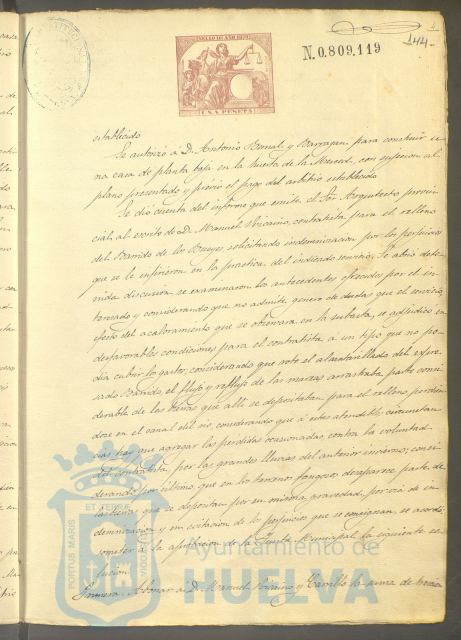 SELLO 11º AÑO 1879
UNA PESETA
N. 0.809.119
144
establecido
Se autorizó á D. Antonio Bernal y Barragan para construir u-
na casa de planta baja en la Huerta de la Merced, con sujecion al
plano presentado y previo el pago del arbitrio establecido
Se dió cuenta del informe que emite el Sor. Arquitecto provin
cial al escrito de D. Manuel Vizcaino, contratista para el relleno
del Barrido de los Bueyes solicitando indemnizacion por los perjuicios
que se le infirieron en la practica del indicado servicio. Se abrió dete-
nida discusion, se examinaron los antecedentes ofrecidos por el in-
teresado y considerando que no admite genero de dudas que el servicio,
efecto del acaloramiento que se observara en la subasta, se adjudicó en
desfavorables condiciones para el contratista á un tipo que no po-
dia cubrir los gastos; considerando que roto el alcantarillado del espre-
sado Barrido, el flujo y reflujo de las mareas arrastraba parte consi
derable de las tierras que alli se depositaban para el relleno perdien
dose en el canal del rio; considerando que á estas atendibles circunstan
cias hay que agregar las perdidas ocasionadas contra la voluntad
del contratista por las grandes lluvias del anterior invierno; consi
derando por último, que en los terrenos fangosos desaparece parte de
las tierras que se depositan por su misma gravedad, por via de in
demnizacion y en evitacion de los perjuicios que se consignan, se acordó
someter á la aprobacion de la Junta Municipal la siguiente re
solucion
Primero. Abonar á D. Manuel Vizcaino y Carrillo la suma de trein
PORTUS MARIS
ET TERRE
Ayuntamiento de
HUELVA